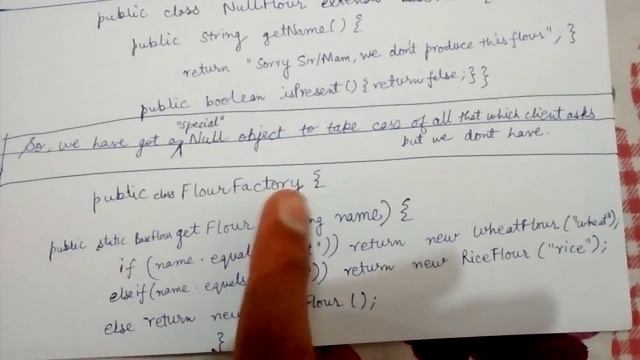 public class NullFlour
public String getName() {
return "Sorry Sir/Mam, we don't produce this flour", }
public boolean isPresent() {return false;}}
So, we have got a "special" Null object to take case of all that which client asks
but we dont have.
public class FlourFactory {
public static BaseFlour getFlour name) {
if (name.equal )) return new WheatFlour ("wheat");
elseif(name.equals )) return new RiceFlour ("rice");
else return new Flour ();
}